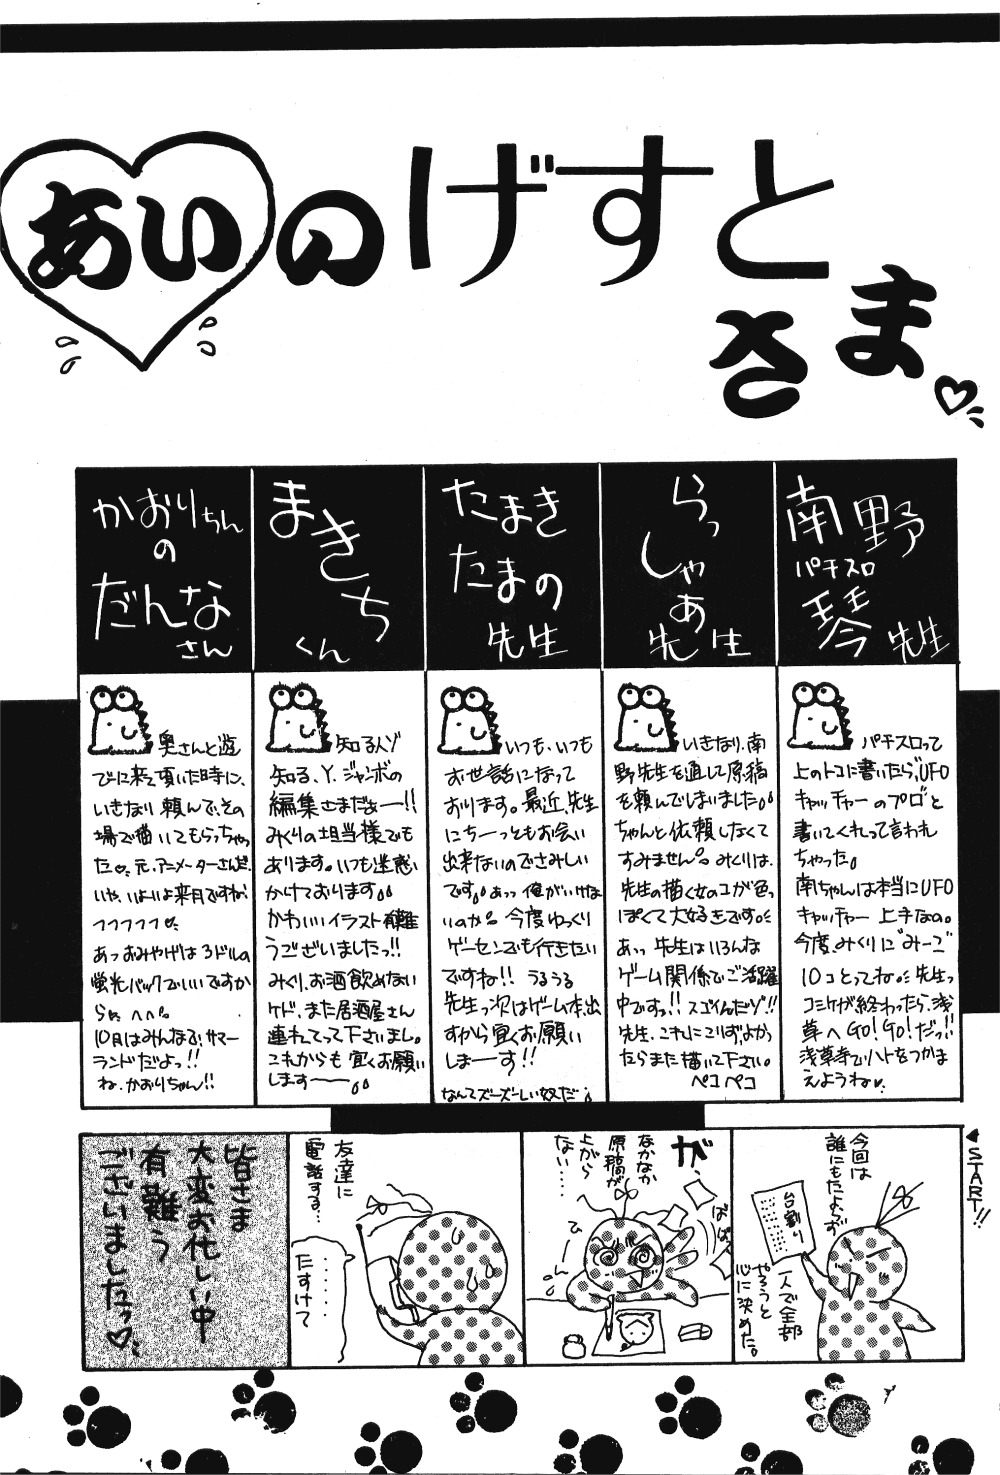 あいのげすと
さま
南野
パチスロ
琴先生
らっ
しゃあ
先生
たまき
たまの
先生
まきち
くん
かおりちん
の
だんな
さん
パチスロって
上のトコに書いたら、UFO
キャッチャーのプロと
書いてくれって言われ
ちゃった。
南ちゃんは本当にUFO
キャッチャー上手なの。
今度、みくりに"みーご"
10コとってね。先生っ
コミケが終わったら、浅
草へGO!GO!だっ!!
浅草寺でハトをつかま
えようね
いきなり、南
野先生を通して原稿
を頼んでしまいました。
ちゃんと依頼しなくて
すみません。みくりは、
先生の描く女のコが色っ
ぽくて大好きです。
あっ 先生はいろんな
ゲーム関係でご活躍
中ですっ!!スゴイんだゾ!!
先生、これにこりず、よかっ
たらまた描いて下さい。
ペコペコ
いつも、いつも
お世話になって
おります。最近、先生
にちーっともお会い
出来ないのでさみしい
です。あっ俺がいけな
いのか。今度ゆっくり
ゲーセンでも行きたい
ですね!!うるうる
先生っ次はゲーム本、出
すから宜くお願い
しまーす!!
なんてズーズーしい奴だ
知る人ゾ
知る、Y.ジャンボの
編集さまだぁー!!
みくりの担当様でも
あります。いつも迷惑
かけております
かわいいイラスト有難
うございましたっ!!
みくり、お酒飲めない
ケド、また居酒屋さん
連れてって下さいまし。
これからも宜くお願い
します
奥さんと遊
びに来て頂いた時に、
いきなり頼んで、その
場で描いてもらっちゃっ
た。元、アニメーターさんだ。
いや、いよいよ来月ですね
フフフフフ
あっおみやげは3ドルの
蛍光パックでいいですか
らね。へへ。
10月はみんなで、サマー
ランドだよっ!!
ね、かおりちゃん!!
START!!
今回は
誰にもたよらず
台割り
一人で全部
やろうと
心に決めた。
が、
なかなか
原稿が
上がら
ない……
ばばっ
ひーん
友達に
電話する…
……
たすけて
皆さま
大変お忙しい中
有難う
ございましたっ